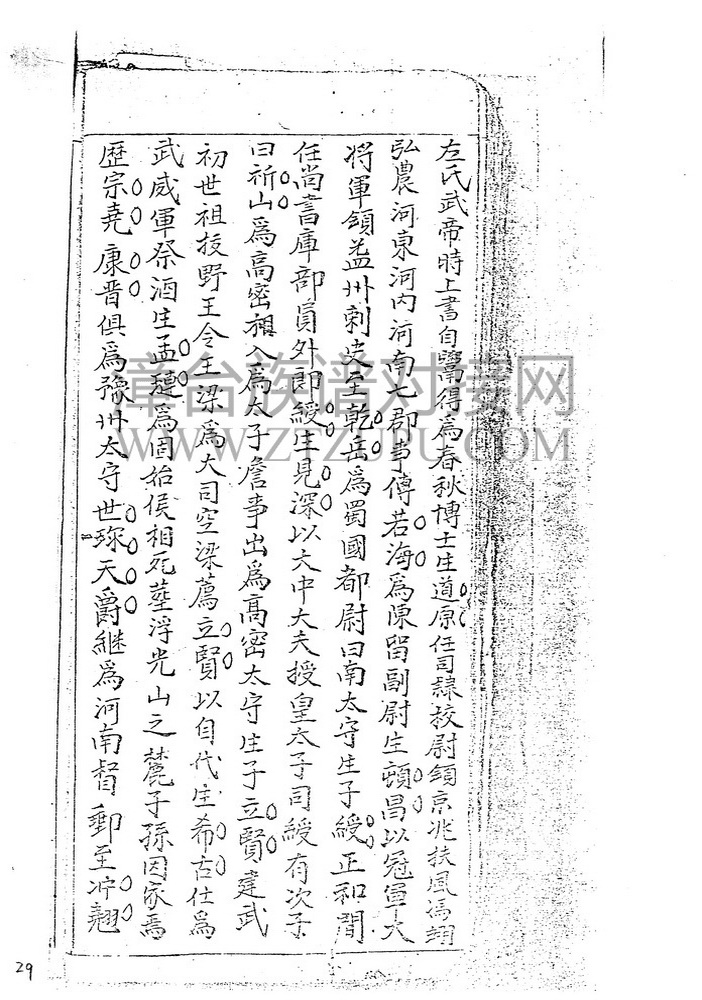 左氏武帝時上書自鬻得為春秋博士生道原任司隸校尉領京兆扶風馮翊
弘農河東河內河南七郡事傳若海為陳留副尉生頓昌以冠軍大
將軍領益州刺史至乾岳為蜀國都尉曰南太守生子綬正和間
任尚書庫部員外郎綬生見深以大中大夫授皇太子司綬有次子
曰祈山為高密相入為太子詹事出為高密太守生子立賢建武
初世祖拔野王令王梁為大司空梁薦立賢以自代生希古仕為
武威軍祭酒生孟韙為固始侯相死塟浮光山之麓子孫因家焉
歷宗堯康晋俱為豫州太守世珎天爵繼為河南督郵至冲翹
29
章台族谱对接网
WWW.ZTZUPU.COM